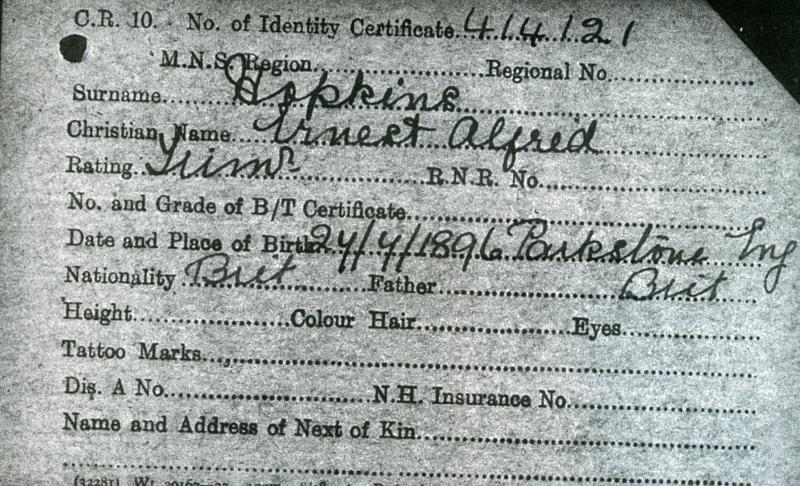 C.R. 10. - No. of Identity Certificate. 414121
M.N.S. Region.......... Regional No..........
Surname.......... Hopkins
Christian Name.... Ernest Alfred
Rating. Trimr .......... R.N.R. No..........
No. and Grade of B/T Certificate..........
Date and Place of Birth 27/7/1896 Parkstone Eng
Nationality Brit .......... Father.......... Brit
Height.......... Colour Hair.......... Eyes..........
Tattoo Marks..........
Dis. A No.......... N.H. Insurance No..........
Name and Address of Next of Kin..........